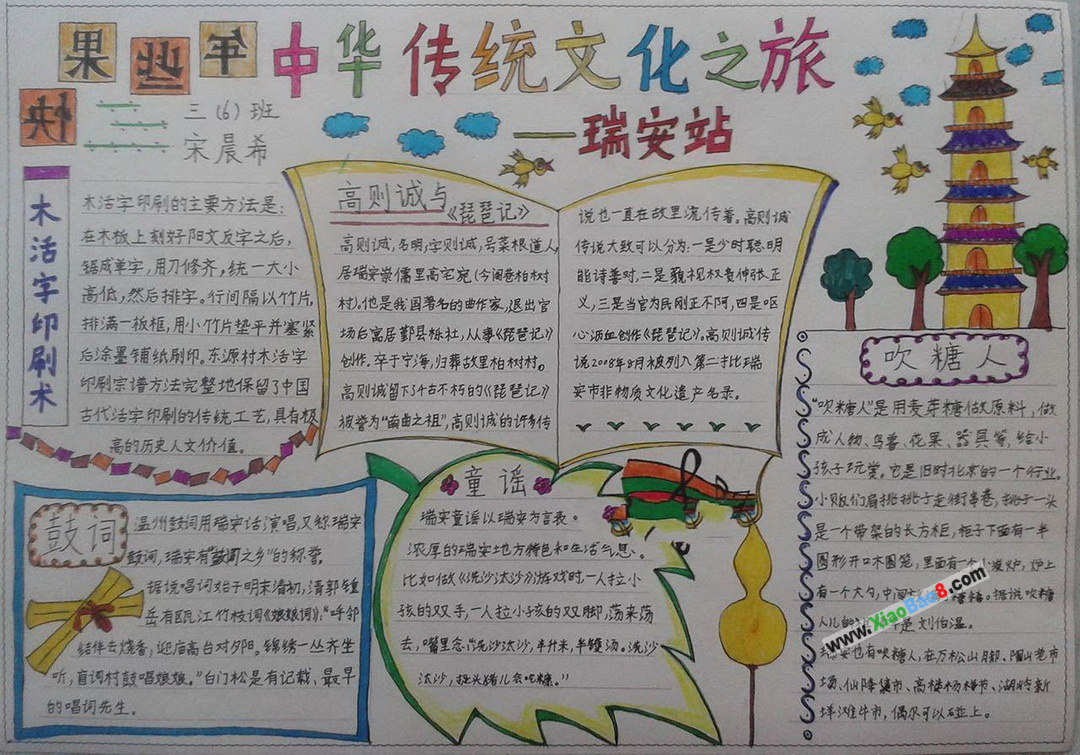 中华传统文化之旅
——瑞安站
三(6)班
宋晨希
木活字印刷术
木活字印刷的主要方法是:
在木板上刻好阳文反字之后,
锯成单字,用刀修齐,统一大小
高低,然后排字。行间隔以竹片,
排满一板框,用小竹片垫平并塞紧
后涂墨铺纸刷印。东源村木活字
印刷宗谱方法完整地保留了中国
古代活字印刷的传统工艺,具有极
高的历史人文价值。
高则诚与
《琵琶记》
高则诚,名明,字则诚,号菜根道人,
居瑞安崇儒里高宅
村),他是我国著名的曲作家,退出官
场后寓居鄞县栎社,从事《琵琶记》
创作。卒于宁海,归葬故里柏树村。
高则诚留下千古不朽的《琵琶记》
被誉为“南曲之祖”,高则诚的许多传
说也一直在故里流传着。高则诚
传说大致可以分为:一是少时聪明
能诗善对,二是藐视权贵伸张正
义,三是当官为民刚正不阿,四是呕
心沥血创作《琵琶记》。高则诚传
说2008年8月被列入第二批瑞
安市非物质文化遗产名录。
吹糖人
“吹糖人”是用麦芽糖做原料,做
成人物、鸟兽、花果、器具等,给小
孩子玩赏。它是旧时北京的一个行业。
小贩们肩挑挑子走街串巷,挑子一头
是一个带架的长方柜,柜子下面有一半
圆形开口木圆笼,里面有一个小煤炉,炉上
有一个大勺,中间 糖。据说吹糖
人儿的 是刘伯温。
瑞安也有吹糖人,在万松山月
场、仙降集市、高楼杨梅节、湖岭新
牛市,偶尔可以碰上。
鼓词
温州鼓词用瑞安话演唱,又称瑞安
鼓词,瑞安有“鼓词之乡”的称誉。
据说唱词始于明末清初,清郭钟
岳有瓯江竹枝词《娘娘词》:“呼邻
结伴去烧香,迎庙高台对夕阳。锦绣一丛齐坐
听,盲词村鼓唱娘娘。”白门松是有记载、最早
的唱词先生。
童谣
瑞安童谣以瑞安方言表。
浓厚的瑞安地方特色和生活气息。
比如做《洗沙汰沙》游戏时,一人拉小
孩的双手,一人拉小孩的双脚,荡来荡
去,嘴里念:“洗沙汰沙,半升米,半镬汤。洗沙
汰沙,
www.XiaoBao8.com